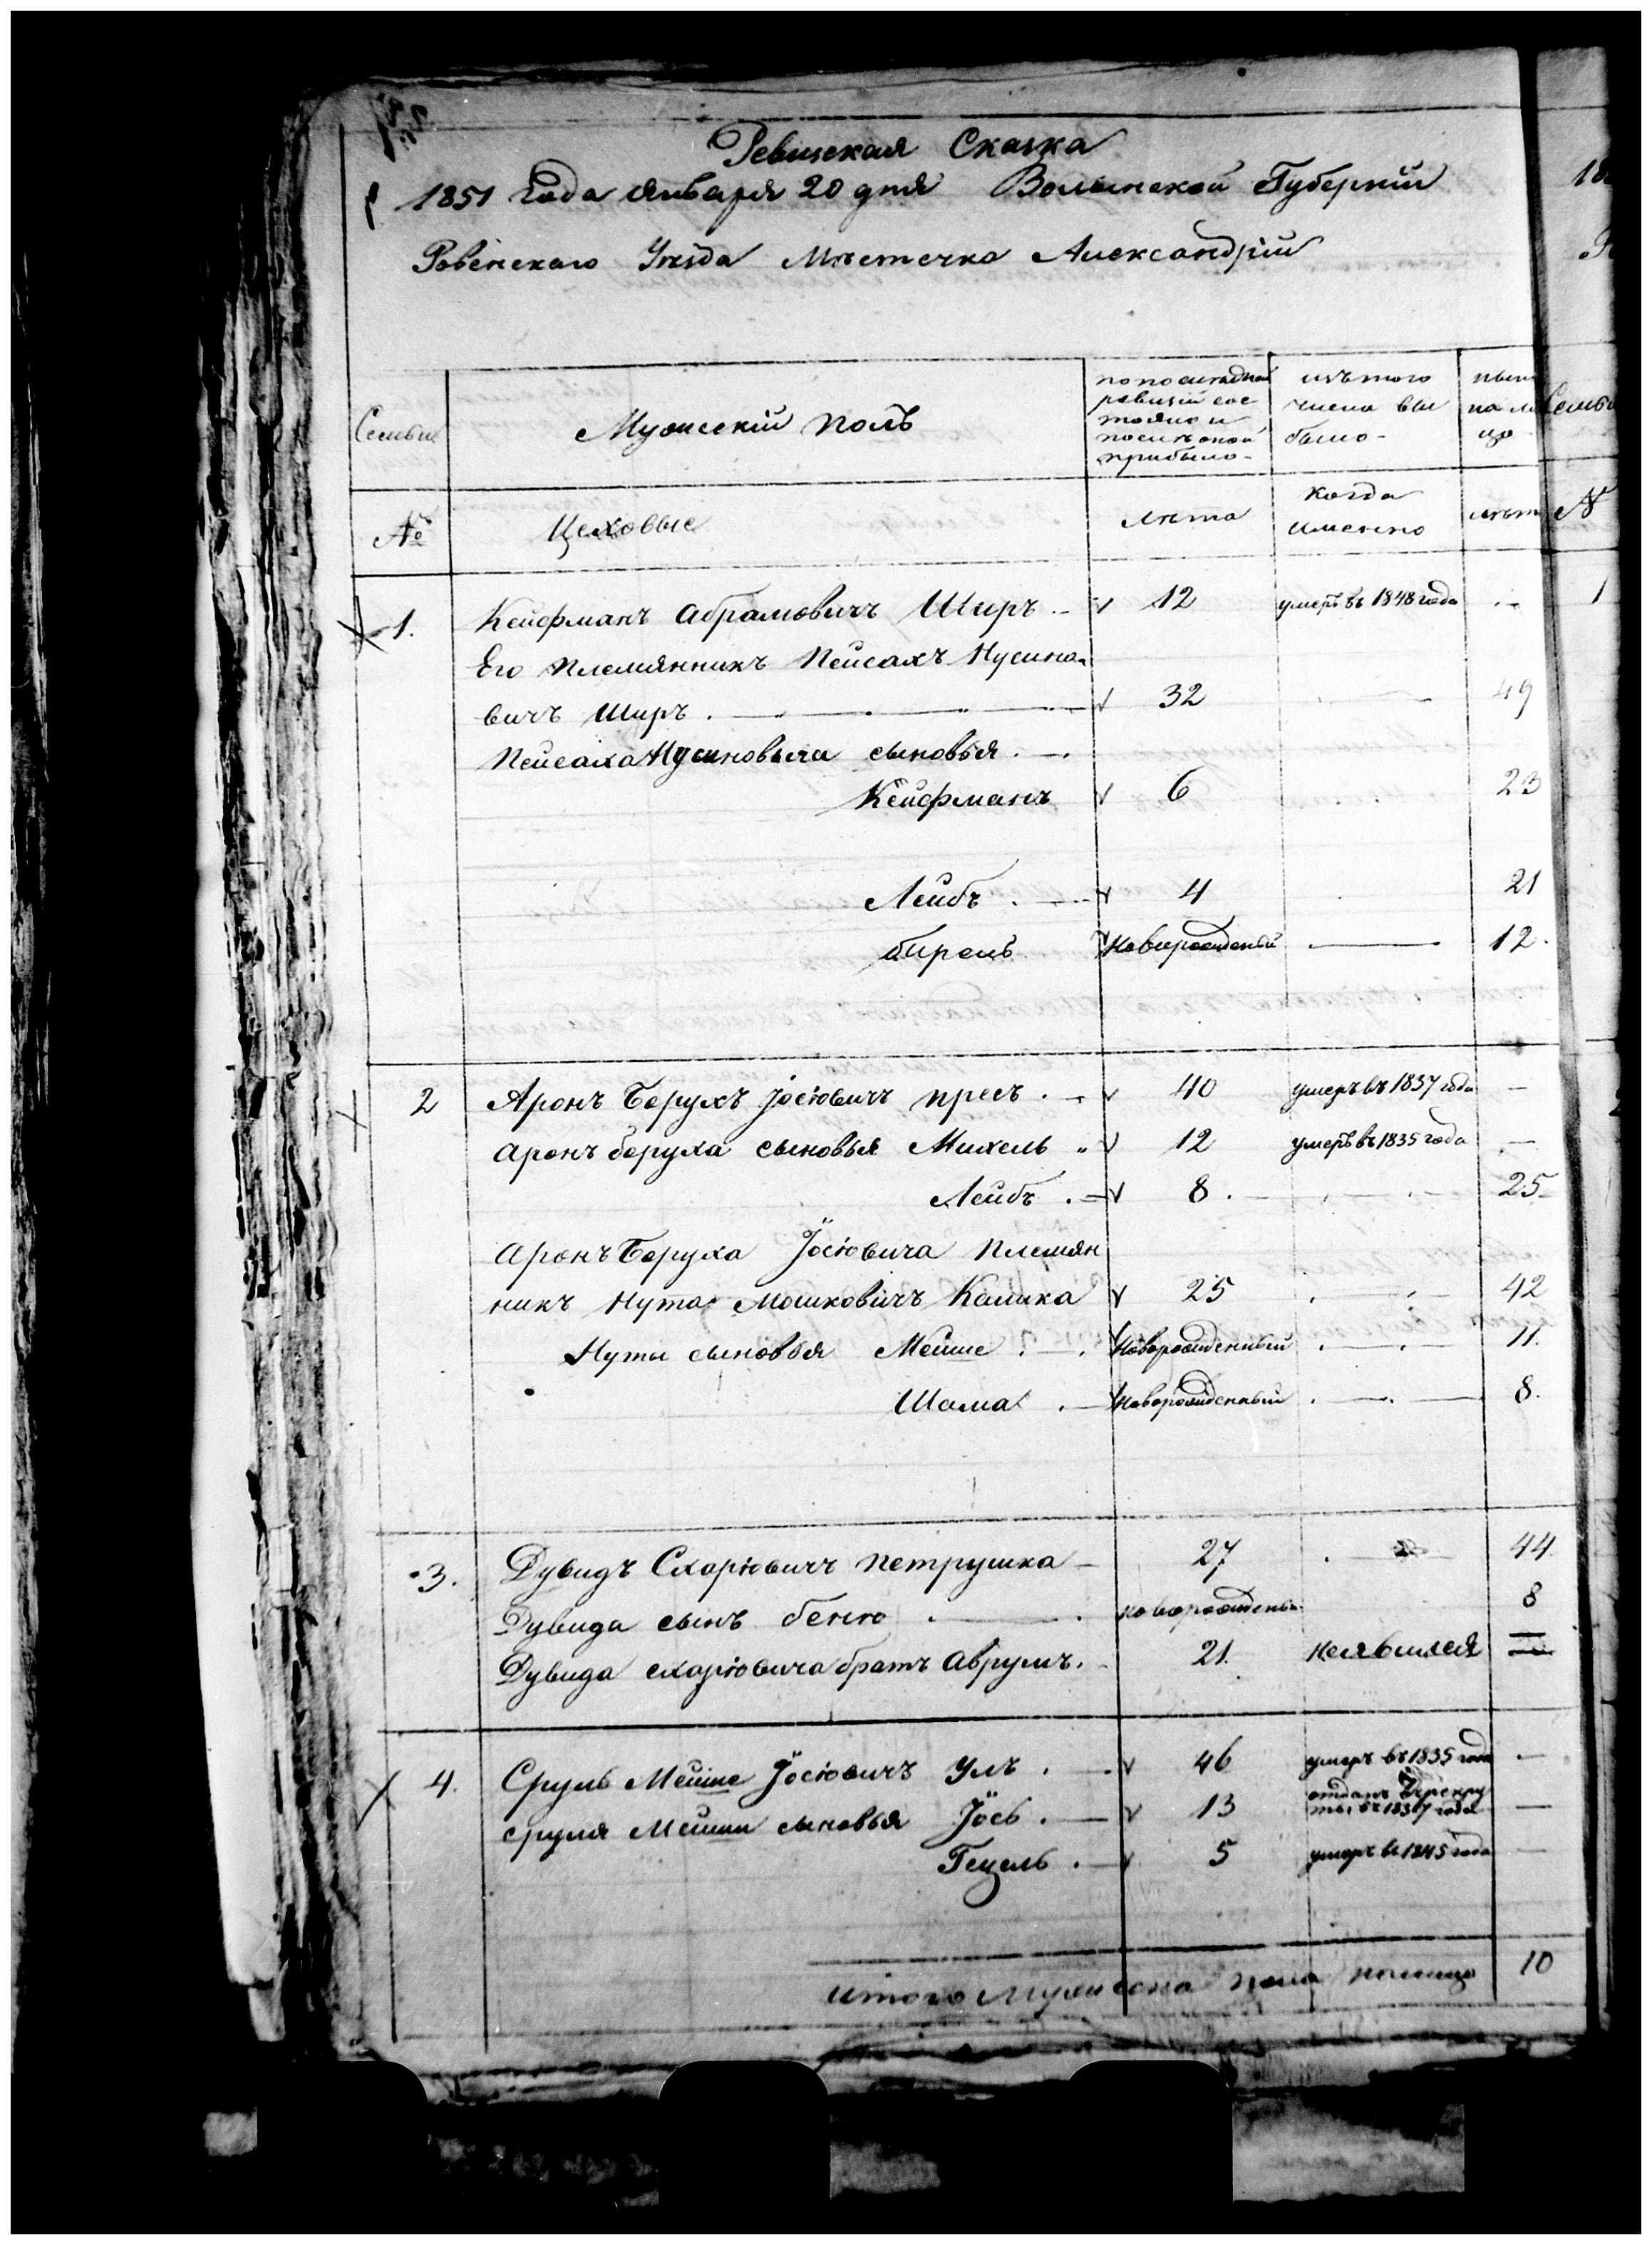 Ревизская Сказка
1851 года Января 20 дня Волынской Губерніи
Ровенскаго Уѣзда Мѣстечка Александріи
Семьи
Мужескій полъ
по последней
ревизіи сос
тояло и
после оной
прибыло
изъ того
числа вы
было
ныне
на ли
цо
Семьи
№
Цеховые
лѣта
когда
именно
лѣт
№
1. Кейфманъ Абрамовичъ Ширъ 12 умеръ въ 1848 года 1
Его племянникъ Пейсахъ Нусино
вичъ Ширъ 32 49
Пейсаха Нусиновича сыновья
Кейфманъ 6 23
Лейбъ 4 21
Новорожденный 12
2 Аронъ Борухъ Іосіовичъ пресъ 40 умеръ въ 1837 года
Аронъ Боруха сыновья Михель 12 умеръ въ 1835 года
Лейбъ 8 25
Аронъ Боруха Іосіовича племян
никъ Нута Мошковичъ Калика 25 42
Нуты сыновья Мейше Новорожденный 11
Шама новорожденный 8
3. Дувидъ Схаріовичъ петрушка 27 44
Дувида сынъ беню новорожденъ 8
Дувида схаріовича братъ Аврумъ 21 неявился
4. Сруль Мейше Іосіовичъ Улъ 46 умеръ въ 1835 года
сруля Мейши сыновья Іось 13 отданъ в рекру
ты въ 1837 года
Гецель 5 умеръ въ 1845 года
итого Мужеска пола налицо 10